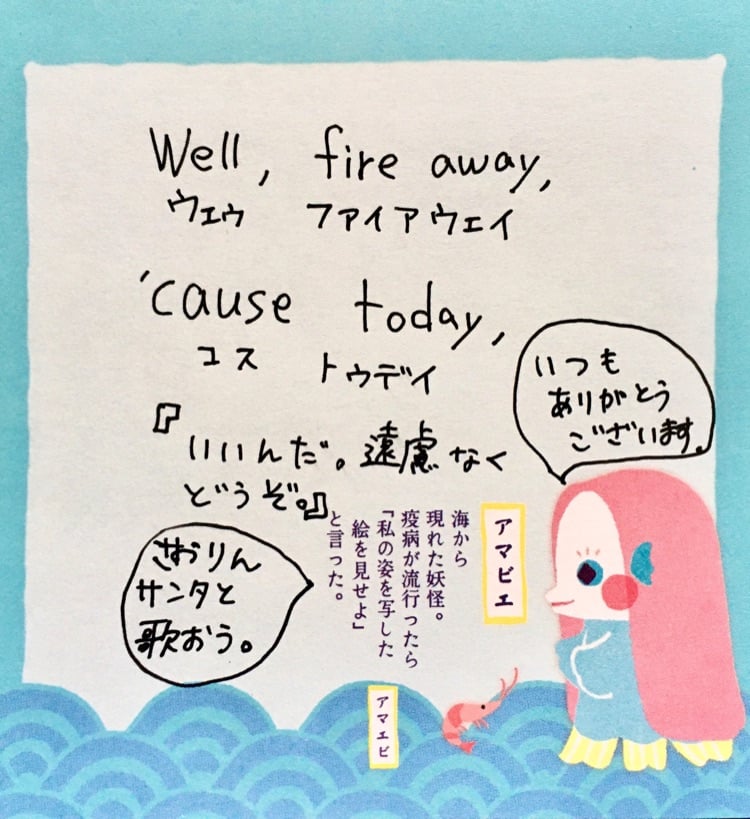 Well, fire away,
ウェゥ ファイアウェイ
'cause today,
コス トゥデイ
『いいんだ。遠慮なく
どうぞ。』
いつも
ありがとう
ございます。
さおりん
サンタと
歌おう。
アマビエ
海から
現れた妖怪。
疫病が流行ったら
「私の姿を写した
絵を見せよ」
と言った。
アマエビ